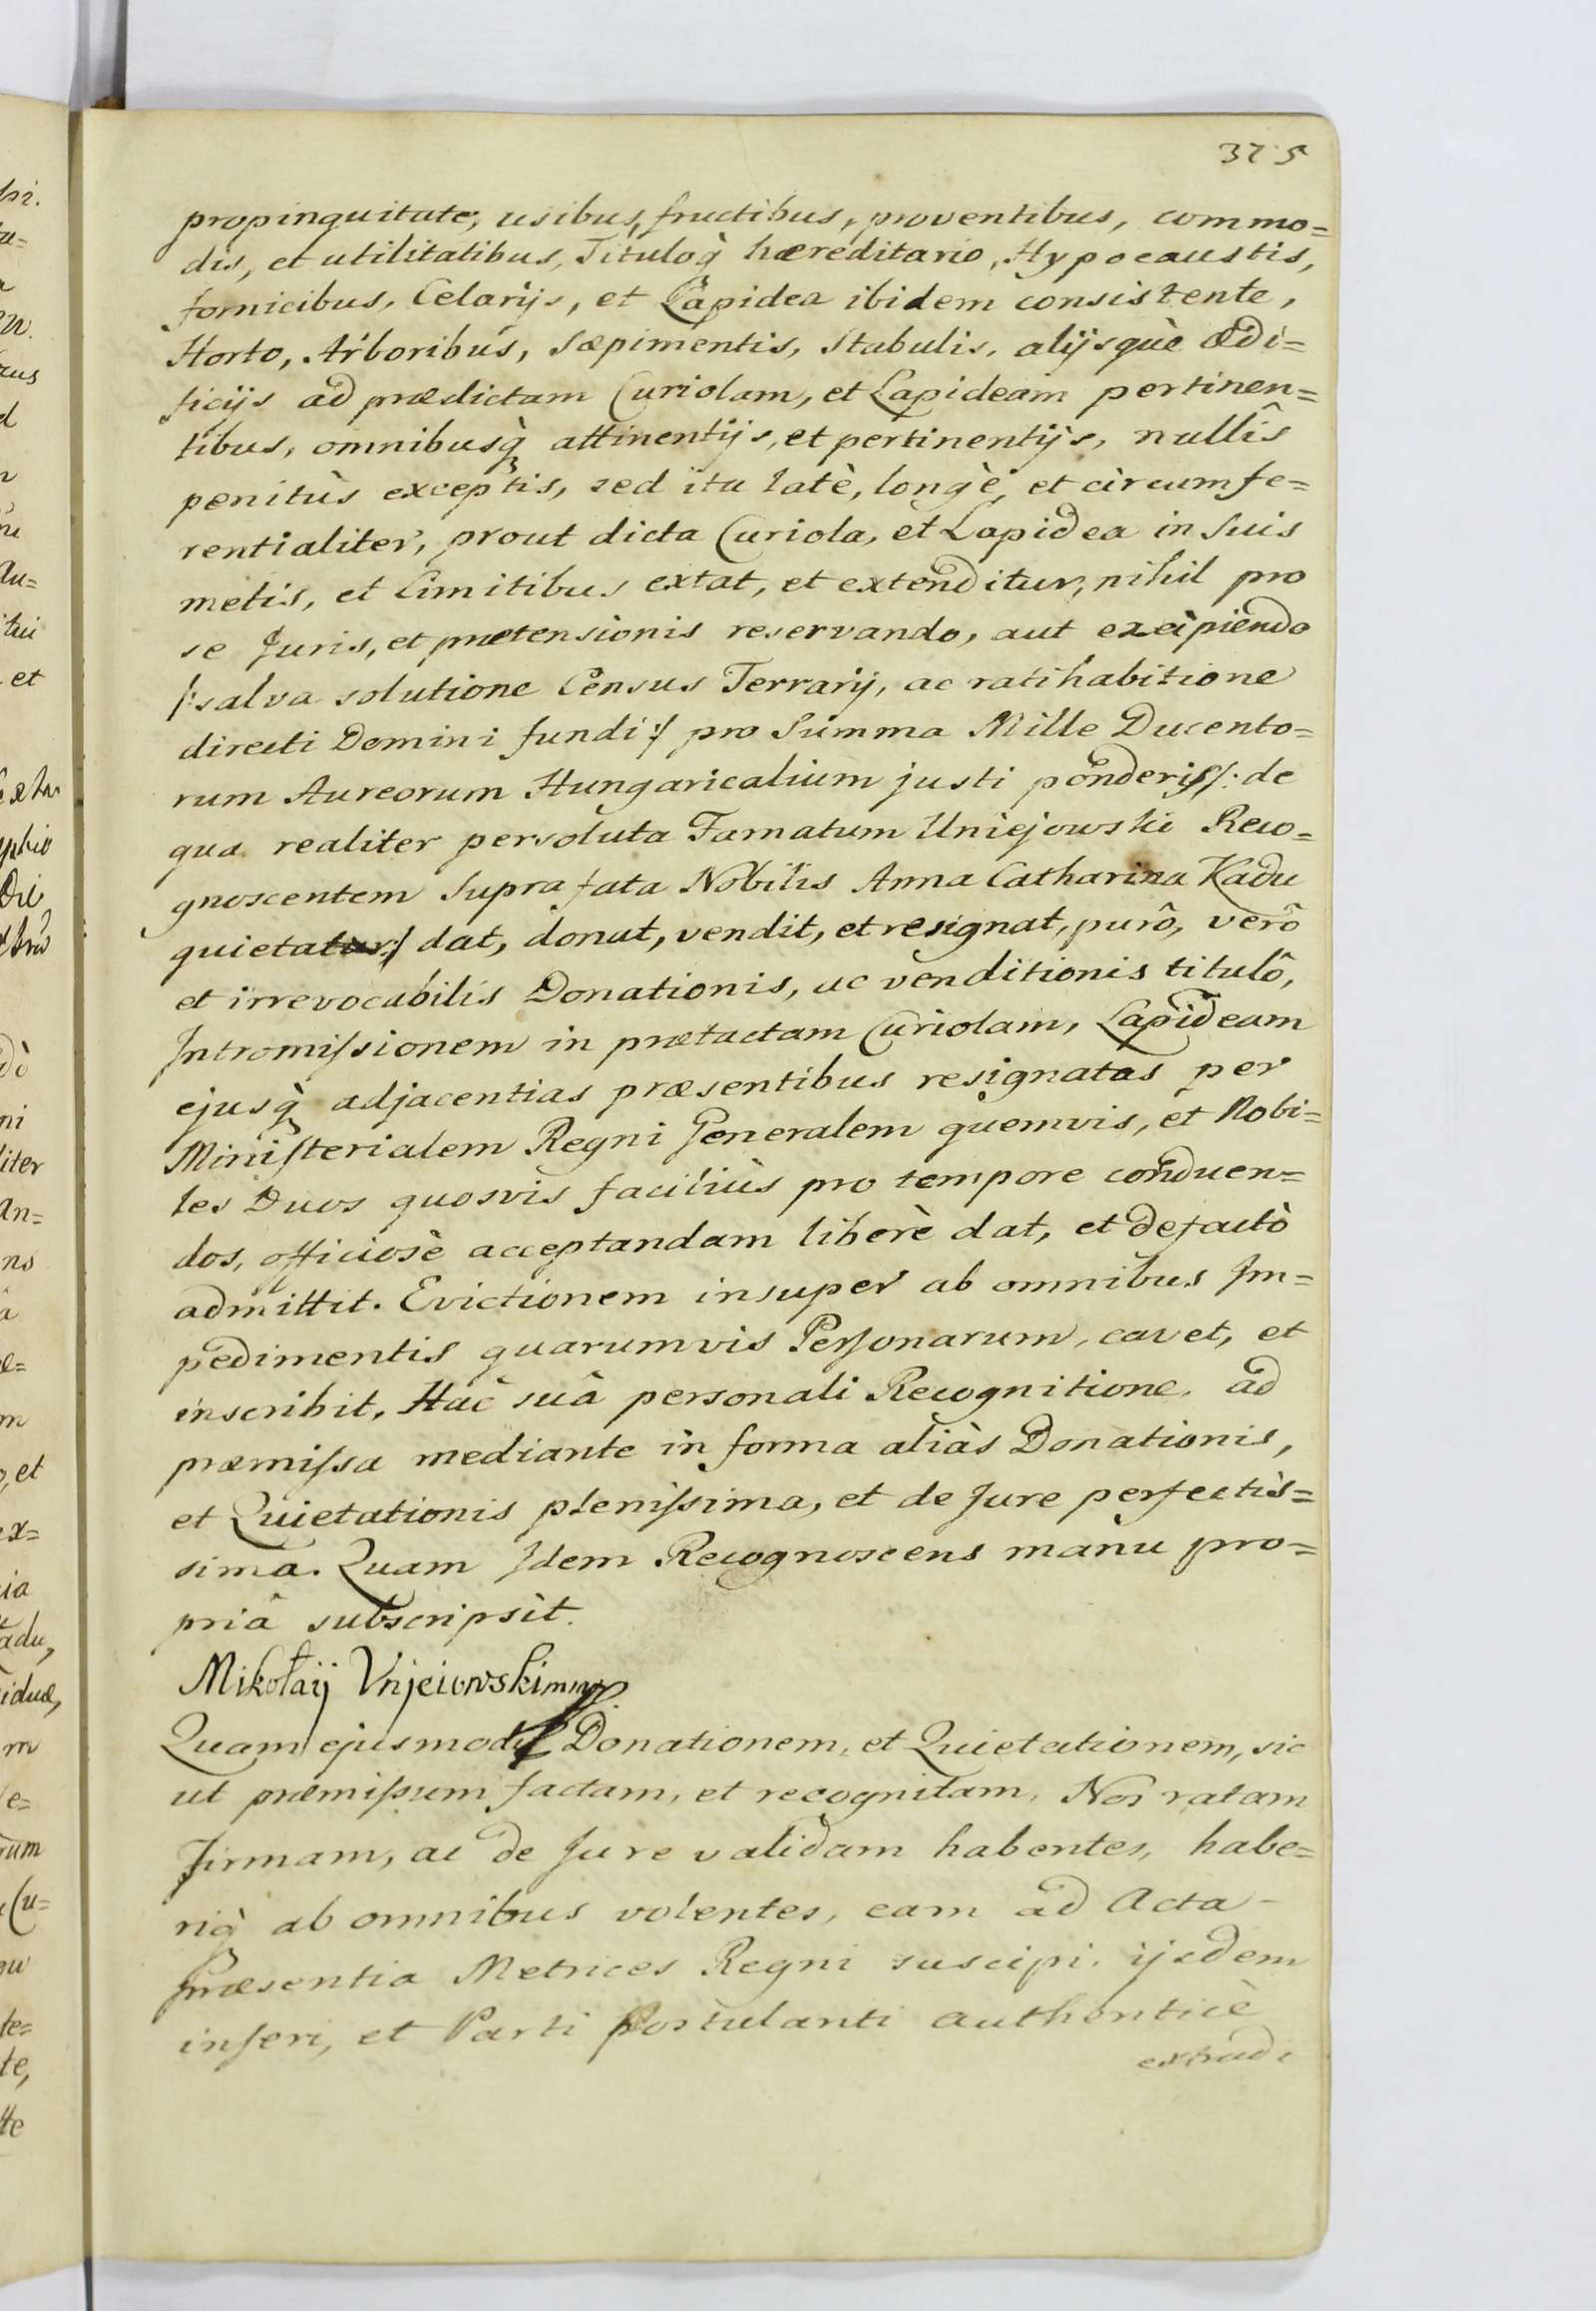 375
propinquitate, usibus, fructibus, proventibus, commo=
dis, et utilitatibus, Tituloq̀ hæreditario, Hypocaustis,
fornicibus, Celarijs, et Lapidea ibidem consistente,
Horto, Arboribus, Sæpimentis, Stabulis, alijsquè ædi=
ficijs ad prædictam Curiolam, et Lapideam pertinen=
tibus, omnibusq̀ attinentijs, et pertinentijs, nullîs
penitùs exceptis, sed ita latè, longè, et circumfe=
rentialiter, prout dicta Curiola, et Lapidea in suis
metis, et Limitibus extat, et extenditur, nihil pro
se Juris, et prætensionis reservando, aut excipiendo
/:salva solutione Census Terrarij, ac ratihabitione
directi Domini fundi:/ pro Summa Mille Ducento=
rum Aureorum Hungaricalium justi ponderis /: de
qua realiter persoluta Famatum Uniejowski Reco=
gnoscentem Suprafata Nobilis Anna Catharina Kadu
quietatur:/ dat, donat, vendit, et resignat, purô, verô
et irrevocabilis Donationis, ac venditionis titulô,
Intromissionem in prætactam Curiolam, Lapideam
ejusq̀ adjacentias præsentibus resignatas per
Ministerialem Regni Generalem quemvis, et Nobi=
les Duos quosvis faciliùs pro tempore conducen=
dos, officiosè acceptandam liberè dat, et defactò
admittit. Evictionem insuper ab omnibus Im=
pedimentis quarumvis Personarum, cavet, et
inscribit, Hac suâ personali Recognitione, ad
præmissa mediante in forma aliàs Donationis,
et Quietationis plenissima, et de Jure perfectis=
sima. Quam Idem Recognoscens manu pro=
priâ subscripsit.
Mikołaij Vnjeiowski mp
Quam ejusmodi Donationem, et Quietationem, sic
ut præmissum factam, et recognitam, Nos ratam
firmam, ac de Jure validam habentes, habe=
riq̀ ab omnibus volentes, eam ad Acta
Præsentia Metrices Regni suscipi, ijsdem
inseri, et Parti Postulanti authenticè
extradi